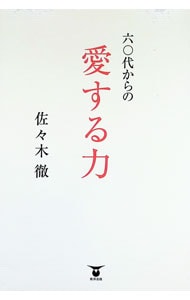 六〇代からの
愛する力
佐々木 徹